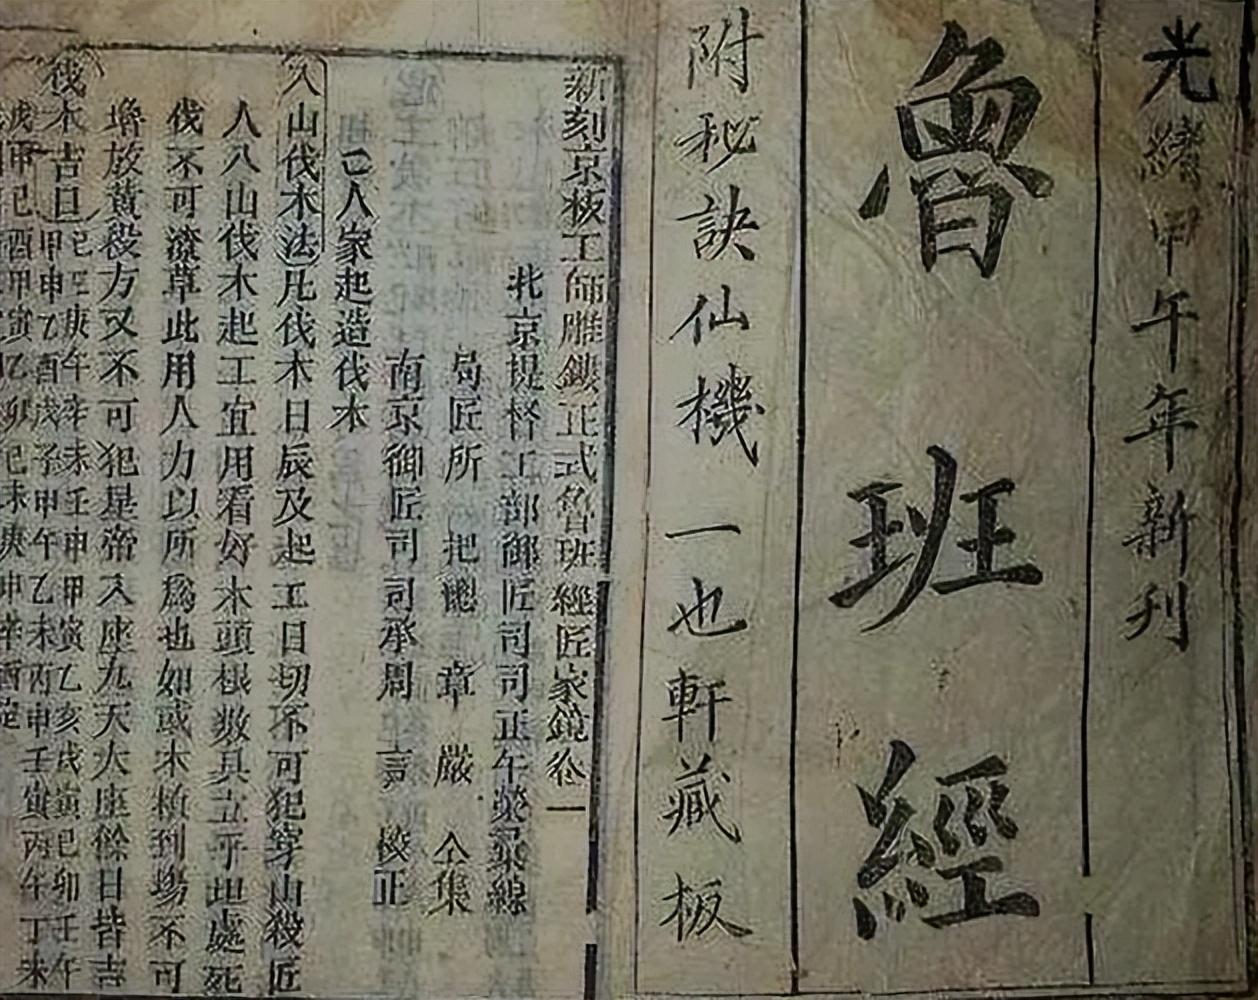 光緒甲午年新刊
魯班經
附秘訣仙機一也軒藏板
新刻京板工師雕鏤正式魯班經匠家鏡卷一
北京提督工部御匠司司正午榮彙編
局匠所把總章嚴仝集
南京御匠司司承周言校正
人家起造伐木
入山伐木法凡伐木日辰及起工日切不可犯穿山殺匠
人入山伐木起工宜用看好木頭根數具立平坦處死
伐不可潦草此用人力以所爲也如或木植到場不可
堆放黃殺方又不可犯皇帝入座九天大座餘日皆吉
伐木吉日己巳庚午辛未壬申甲寅乙亥戊寅己卯壬午
甲申乙酉戊子甲午乙未丙申壬寅丙午丁未
戊申己酉甲寅乙卯己未庚申辛酉定